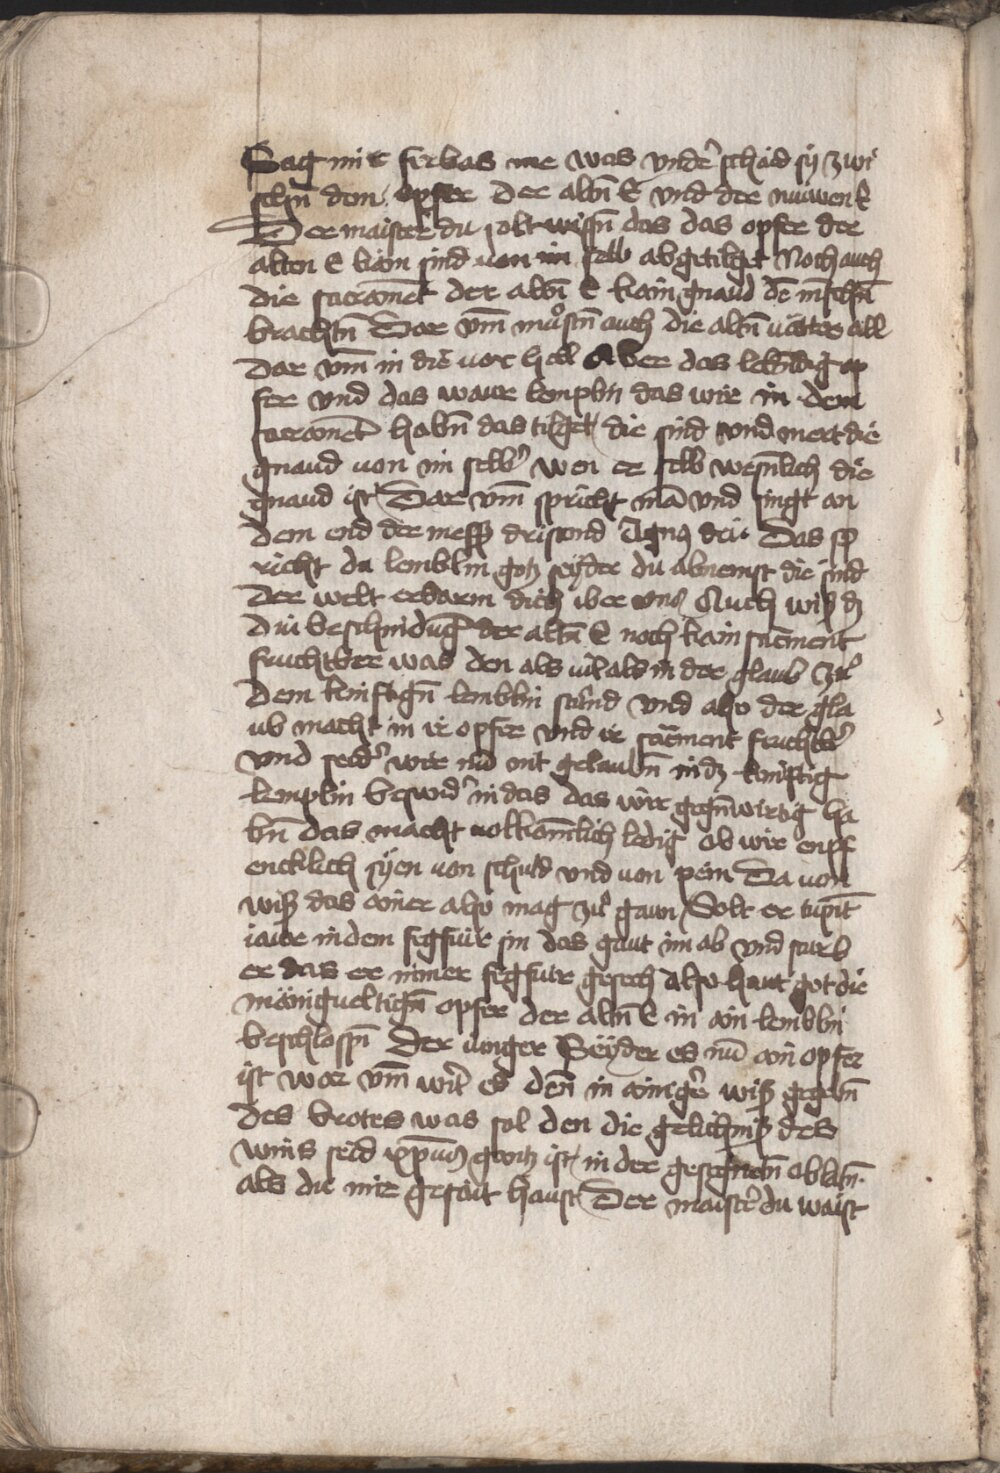 Sag mir fürbas me was vnder schaid sÿ zwi
schn̄ dem opfer der altn̄ E vnd der nuiwen E
Der maister du solt wissn̄ das das opfer der
alten E kain sind von im selb abgetilget Noch auch
die sacrament der altn̄ E kain gnaud dē mēschn̄
brachtn̄ Dar vm̄ muͦstn̄ auch die altn̄ vätter all
Dar vm̄ in die vor hell Aber das lebndig op
fer vnd das waur lemplin das wir in dem
sacrament habn̄ das tilget die sind vnd mert die
gnaud von im selber wen er selb wesnlich die
gnaud ist Dar vm̄ spricht mā vnd singt an
dem end der mess dristond Agnus dei Das sp
richt du lemblin gotz seÿder du abnemst die sind
Der welt erbarm dich iber vns Auch wiß dz
Diu beschnidūg der altn̄ E noch kain sacment
fruchtber was den als uil als in der glaub zuͦ
Dem kinftign̄ lemblin stuͦnd vnd also der gla
ub macht in ir opfer vnd ir sacment fruchtbr
vnd seider wir nū nit gelaubn̄ in dz kinftig
lemplin besundr in das das wir gegnwirtig ha
bn̄ das macht volkōmlich ledig ob wir enpf
encklich sÿen von schuld vnd von pein Da von
wiß das ainer also mag zuͦ gaun Solt er tusent
iaur in dem fegfuir sin das gaut im ab vnd sturb
er das er nimer fegfuir gesech Also haut got die
mänigueltign̄ opfer der altn̄ E in ain lemblin
beschlossn̄ Der iunger Seÿder es nū ain opfer
ist war vm̄ wirt es den̄ in ainiger wiß gegebn̄
Des brotes was sol den die gelichniß des
wins seid xp̄us gantz ist in der gesegnetn̄ oblatn̄
als du mir gesait haust Der maister du waist